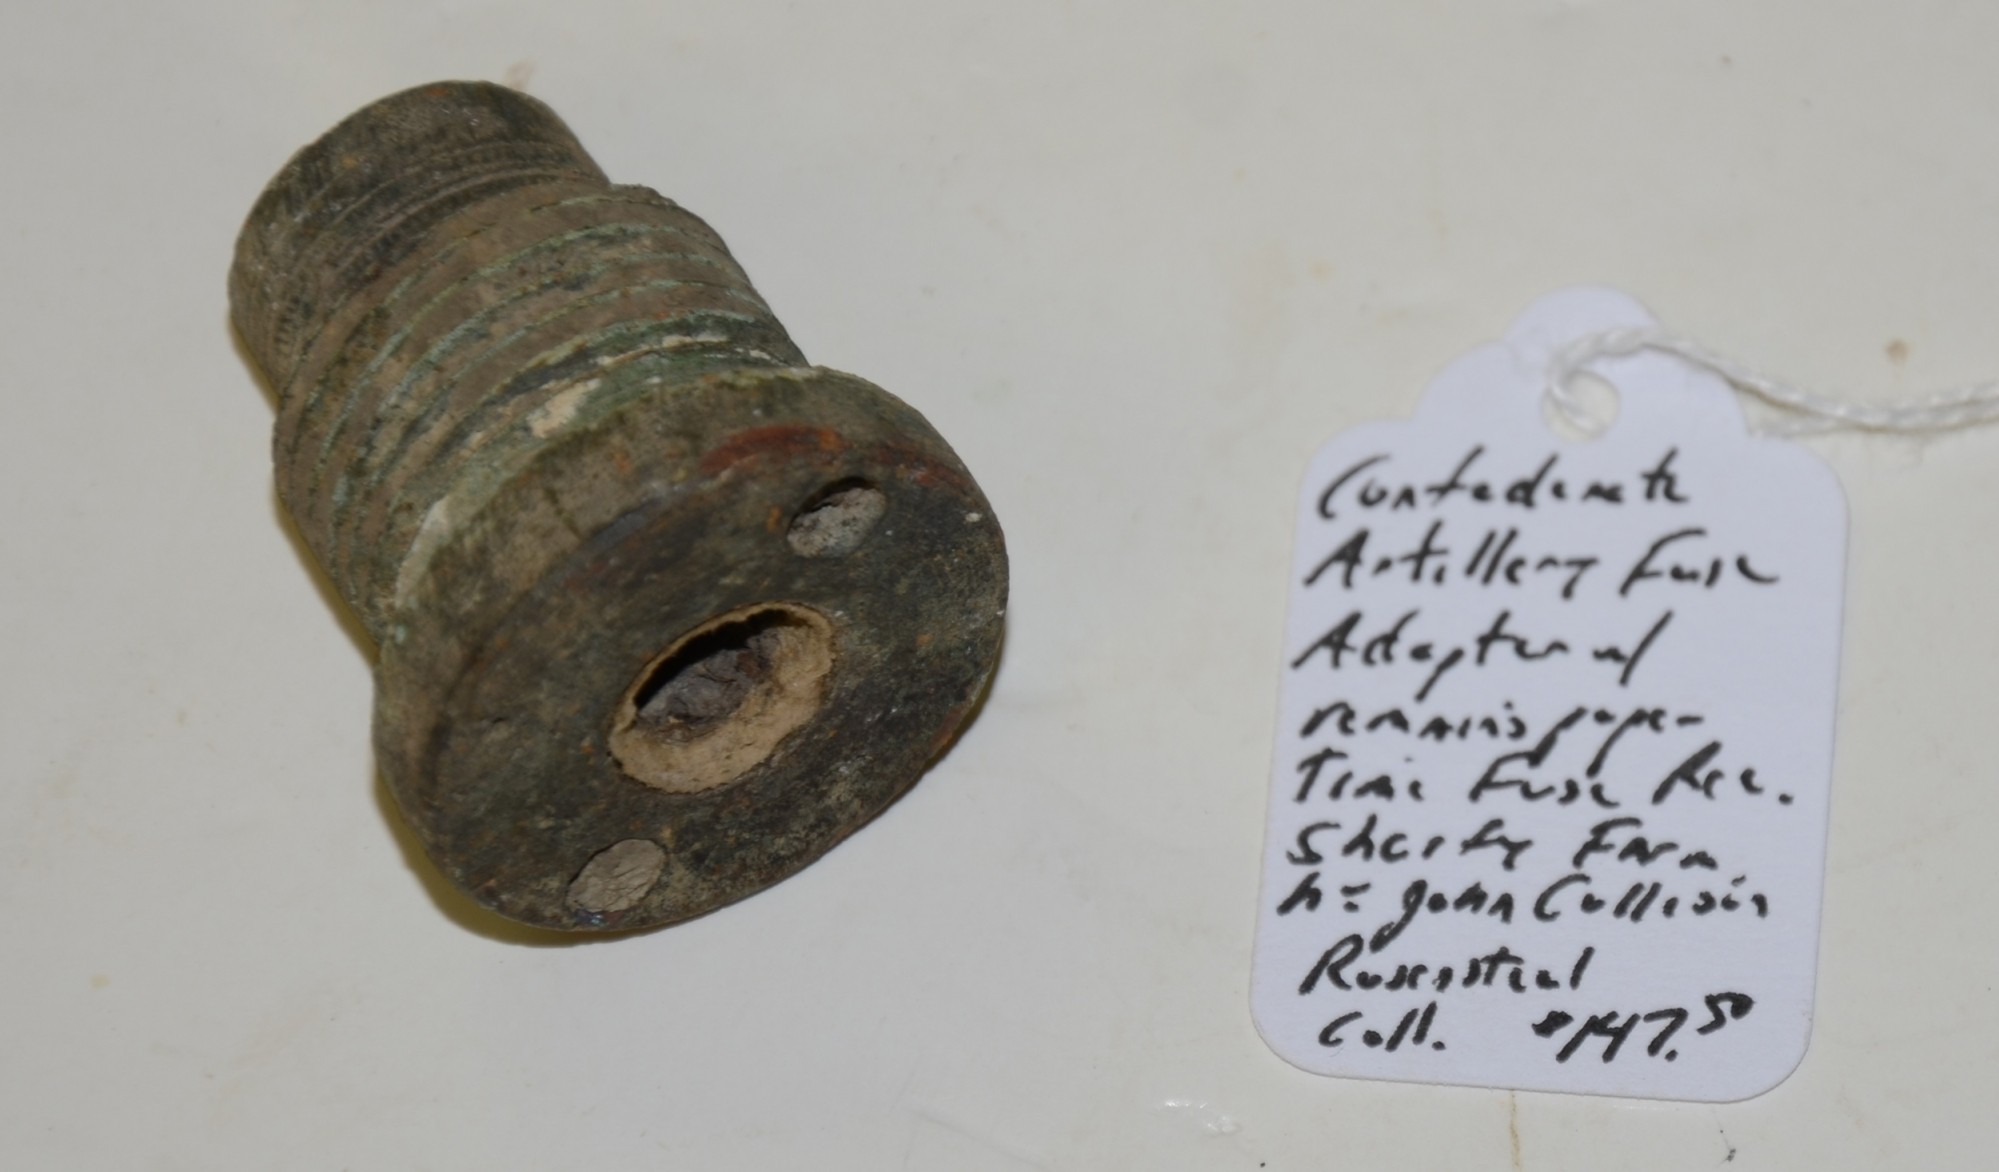 Confederate
Artillery Fuse
Adapter w/
remains paper
Time Fuse Rec.
Sherfy Farm
John Cullison
Rosensteel
Coll. $147.50